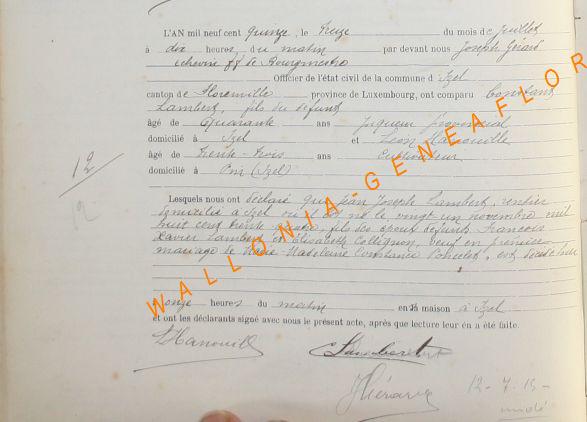 L'AN mil neuf cent quinze, le treize du mois de Juillet
à dix heures, du matin par devant nous Joseph Gérard
échevin ff de Bourgmestre
Officier de l'état civil de la commune d'Izel
canton de Florenville province de Luxembourg, ont comparu Constant
Lambert, fils du défunt
âgé de Quarante ans Piqueur provincial
domicilié à Izel et Léon Hanouille
âgé de trente-trois ans Cultivateur
domicilié à Pin (Izel)
12
12
Lesquels nous ont déclaré que Jean Joseph Lambert, rentier
domicilié à Izel où il est né le vingt un novembre mil
huit cent trente, fils des époux défunts François
Xavier Lambert et Elisabeth Collignon, veuf en premier
mariage de Marie-Madeleine Constance est décédé hier
onze heures du matin en sa maison à Izel
et ont les déclarants signé avec nous le présent acte, après que lecture leur en a été faite.
L Hanouille C Lambert
JGérard 12-7-15-
midi
WALLONIA-GENEAFLOR